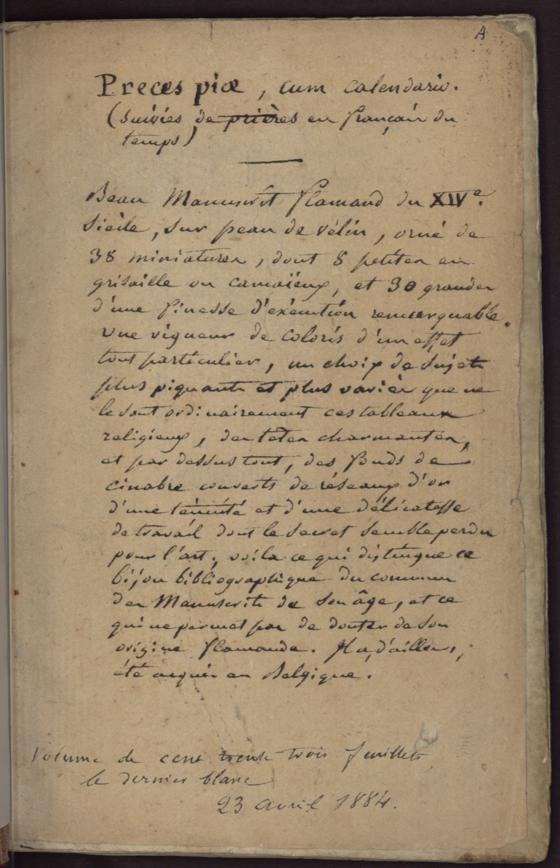 A
Preces piæ, cum calendario.
(suivies de prières en français du
temps)
Beau Manuscrit flamand du XIVe.
Siècle, sur peau de vélin, orné de
38 miniatures, dont 8 petites en
grisaille ou camaïeux, et 30 grandes
d'une finesse d'exécution remarquable.
une vigueur de coloris d'un effet
tout particulier, un choix de sujets
plus piquants et plus variés que ne
le sont ordinairement ces tableaux
religieux, des têtes charmantes,
et par dessus tout, des fonds de
cinabre couverts de réseaux d'or
d'une ténuité et d'une délicatesse
de travail dont le secret semble perdu
pour l'art; voilà ce qui distingue ce
bijou bibliographique du commun
des Manuscrits de son âge, et ce
qui ne permet pas de douter de son
origine flamande. Il a, d'ailleurs,
été acquis en Belgique.
Volume de cent trente trois feuillets
le dernier blanc
23 avril 1884.